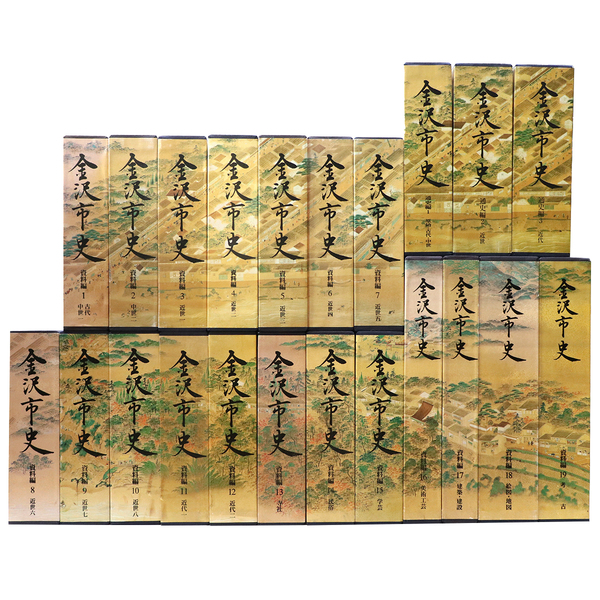 金沢市史
通史編 1 原始・古代・中世
金沢市史
通史編 2 近世
金沢市史
通史編 3 近代
金沢市史
資料編 1 古代 中世一
金沢市史
資料編 2 中世二
金沢市史
資料編 3 近世一
金沢市史
資料編 4 近世二
金沢市史
資料編 5 近世三
金沢市史
資料編 6 近世四
金沢市史
資料編 7 近世五
金沢市史
資料編 8 近世六
金沢市史
資料編 9 近世七
金沢市史
資料編 10 近世八
金沢市史
資料編 11 近代一
金沢市史
資料編 12 近代二
金沢市史
資料編 13 寺社
金沢市史
資料編 民俗
金沢市史
資料編 15 学芸
金沢市史
資料編 美術工芸
金沢市史
資料編 17 建築・建設
金沢市史
資料編 18 絵図・地図
金沢市史
資料編 19 考古